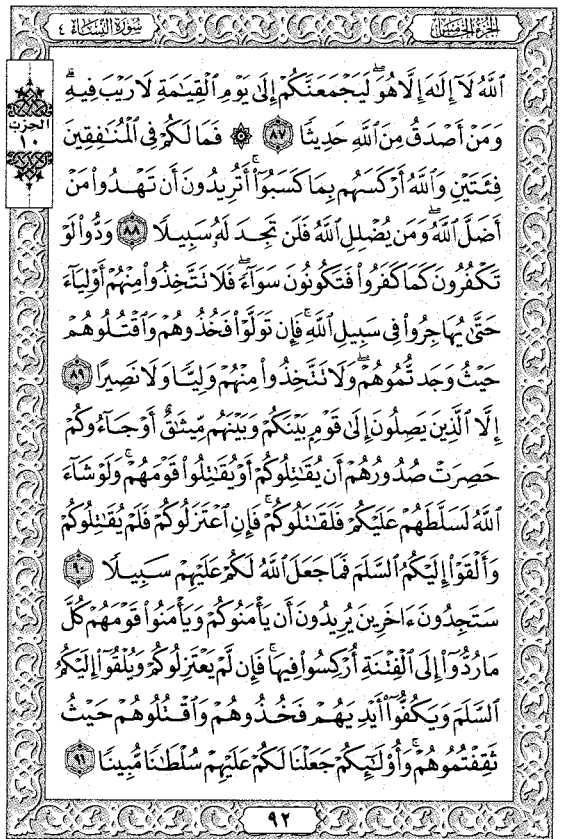 سُورَةُ النِّسَاءِ ٤
الجُزءُ الخَامِسُ
الحِزب
١٠
ٱللَّهُ لَآ إِلَٰهَ إِلَّا هُوَۚ لَيَجۡمَعَنَّكُمۡ إِلَىٰ يَوۡمِ ٱلۡقِيَٰمَةِ لَا رَيۡبَ فِيهِۗ
وَمَنۡ أَصۡدَقُ مِنَ ٱللَّهِ حَدِيثٗا ٨٧ ۞ فَمَا لَكُمۡ فِي ٱلۡمُنَٰفِقِينَ
فِئَتَيۡنِ وَٱللَّهُ أَرۡكَسَهُم بِمَا كَسَبُوٓاْۚ أَتُرِيدُونَ أَن تَهۡدُواْ مَنۡ
أَضَلَّ ٱللَّهُۖ وَمَن يُضۡلِلِ ٱللَّهُ فَلَن تَجِدَ لَهُۥ سَبِيلٗا ٨٨ وَدُّواْ لَوۡ
تَكۡفُرُونَ كَمَا كَفَرُواْ فَتَكُونُونَ سَوَآءٗۖ فَلَا تَتَّخِذُواْ مِنۡهُمۡ أَوۡلِيَآءَ
حَتَّىٰ يُهَاجِرُواْ فِي سَبِيلِ ٱللَّهِۚ فَإِن تَوَلَّوۡاْ فَخُذُوهُمۡ وَٱقۡتُلُوهُمۡ
حَيۡثُ وَجَدتُّمُوهُمۡۖ وَلَا تَتَّخِذُواْ مِنۡهُمۡ وَلِيّٗا وَلَا نَصِيرًا ٨٩
إِلَّا ٱلَّذِينَ يَصِلُونَ إِلَىٰ قَوۡمِۭ بَيۡنَكُمۡ وَبَيۡنَهُم مِّيثَٰقٌ أَوۡ جَآءُوكُمۡ
حَصِرَتۡ صُدُورُهُمۡ أَن يُقَٰتِلُوكُمۡ أَوۡ يُقَٰتِلُواْ قَوۡمَهُمۡۚ وَلَوۡ شَآءَ
ٱللَّهُ لَسَلَّطَهُمۡ عَلَيۡكُمۡ فَلَقَٰتَلُوكُمۡۚ فَإِنِ ٱعۡتَزَلُوكُمۡ فَلَمۡ يُقَٰتِلُوكُمۡ
وَأَلۡقَوۡاْ إِلَيۡكُمُ ٱلسَّلَمَ فَمَا جَعَلَ ٱللَّهُ لَكُمۡ عَلَيۡهِمۡ سَبِيلٗا ٩٠
سَتَجِدُونَ ءَاخَرِينَ يُرِيدُونَ أَن يَأۡمَنُوكُمۡ وَيَأۡمَنُواْ قَوۡمَهُمۡ كُلَّ
مَا رُدُّوٓاْ إِلَى ٱلۡفِتۡنَةِ أُرۡكِسُواْ فِيهَاۚ فَإِن لَّمۡ يَعۡتَزِلُوكُمۡ وَيُلۡقُوٓاْ إِلَيۡكُمُ
ٱلسَّلَمَ وَيَكُفُّوٓاْ أَيۡدِيَهُمۡ فَخُذُوهُمۡ وَٱقۡتُلُوهُمۡ حَيۡثُ
ثَقِفۡتُمُوهُمۡۚ وَأُوْلَٰٓئِكُمۡ جَعَلۡنَا لَكُمۡ عَلَيۡهِمۡ سُلۡطَٰنٗا مُّبِينٗا ٩١
٩٢